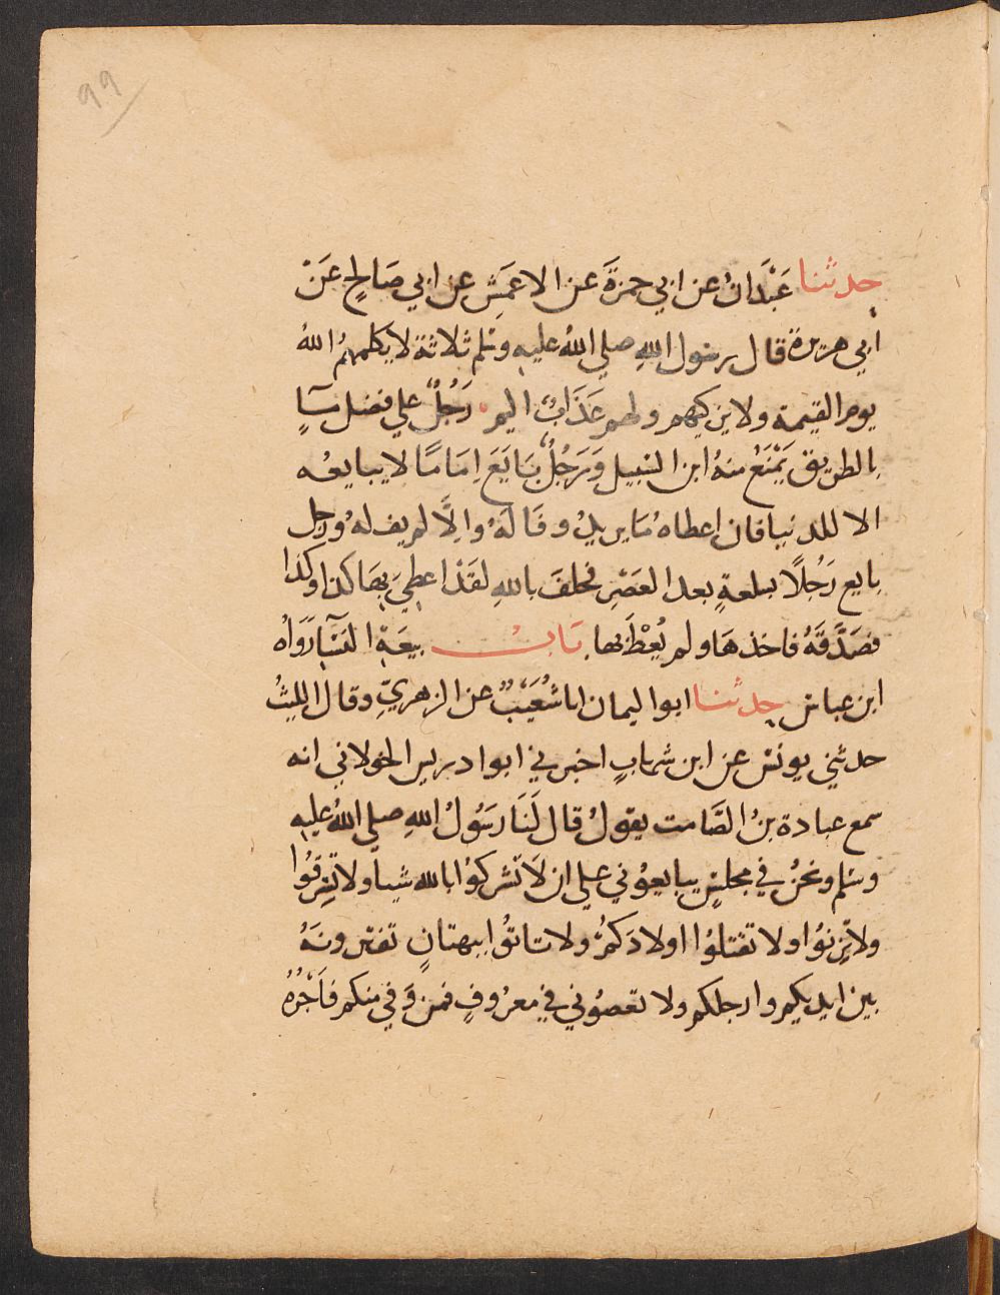 ٩٩
حدثنا عَبْدَانُ عن ابي حمزَةَ عن الاعمَشِ عن ابي صَالحٍ عَنْ
ابي هريرة قال رسول اللهِ صلي اللهُ عليه وسَلم ثلاثة لا يكلمهمُ اللهُ
يوم القيمة ولا يزكيهم ولهم عَذَابٌ اليم رَجُلٌ علي فضل مآءٍ
بالطريق يَمْنَعُ منهُ ابن السبيل وَرَجُلٌ بَايَعَ اِمَامًا لا يبايعُه
الا للدنيا فان اعطاهُ مَا يريدُ وفَا لهُ والِاَّ لم يف لهُ ورجل
بايع رَجُلًا بسلعةٍ بعد العَصْرِ فحلفَ باللهِ لقَدْ اعطِيَ بِهَا كذا وكذا
فصَدَّقَهُ فاخذهَا ولم يُعْطَ بها بَابُ بيعَةِ النسَآءِ رَوَاهُ
ابن عباس حدثنا ابوا اليمان انا شُعَيْبٌ عن الزهريِّ وقال الليثُ
حدثني يونسُ عن ابن شهابٍ اخبرني ابوا دريس الخولاني انه
سمع عبادة بنُ الصَّامت يقولُ قال لَنَا رسَولُ اللهِ صلي اللهُ عليه
وسَلم ونحنُ في مجلسٍ يبايعوُني علي ان لَا تشركوُا بالله شيأ ولا تسْرقُوا
ولا تزنوُا ولا تقتلوُا اولادَكمُ ولا تاتوُا ببهتانٍ تفترونَهُ
بين ايديكم وارجلكم ولا تعصوُني في معرُوفٍ فمن وَفي منكم فاَجْرُهُ